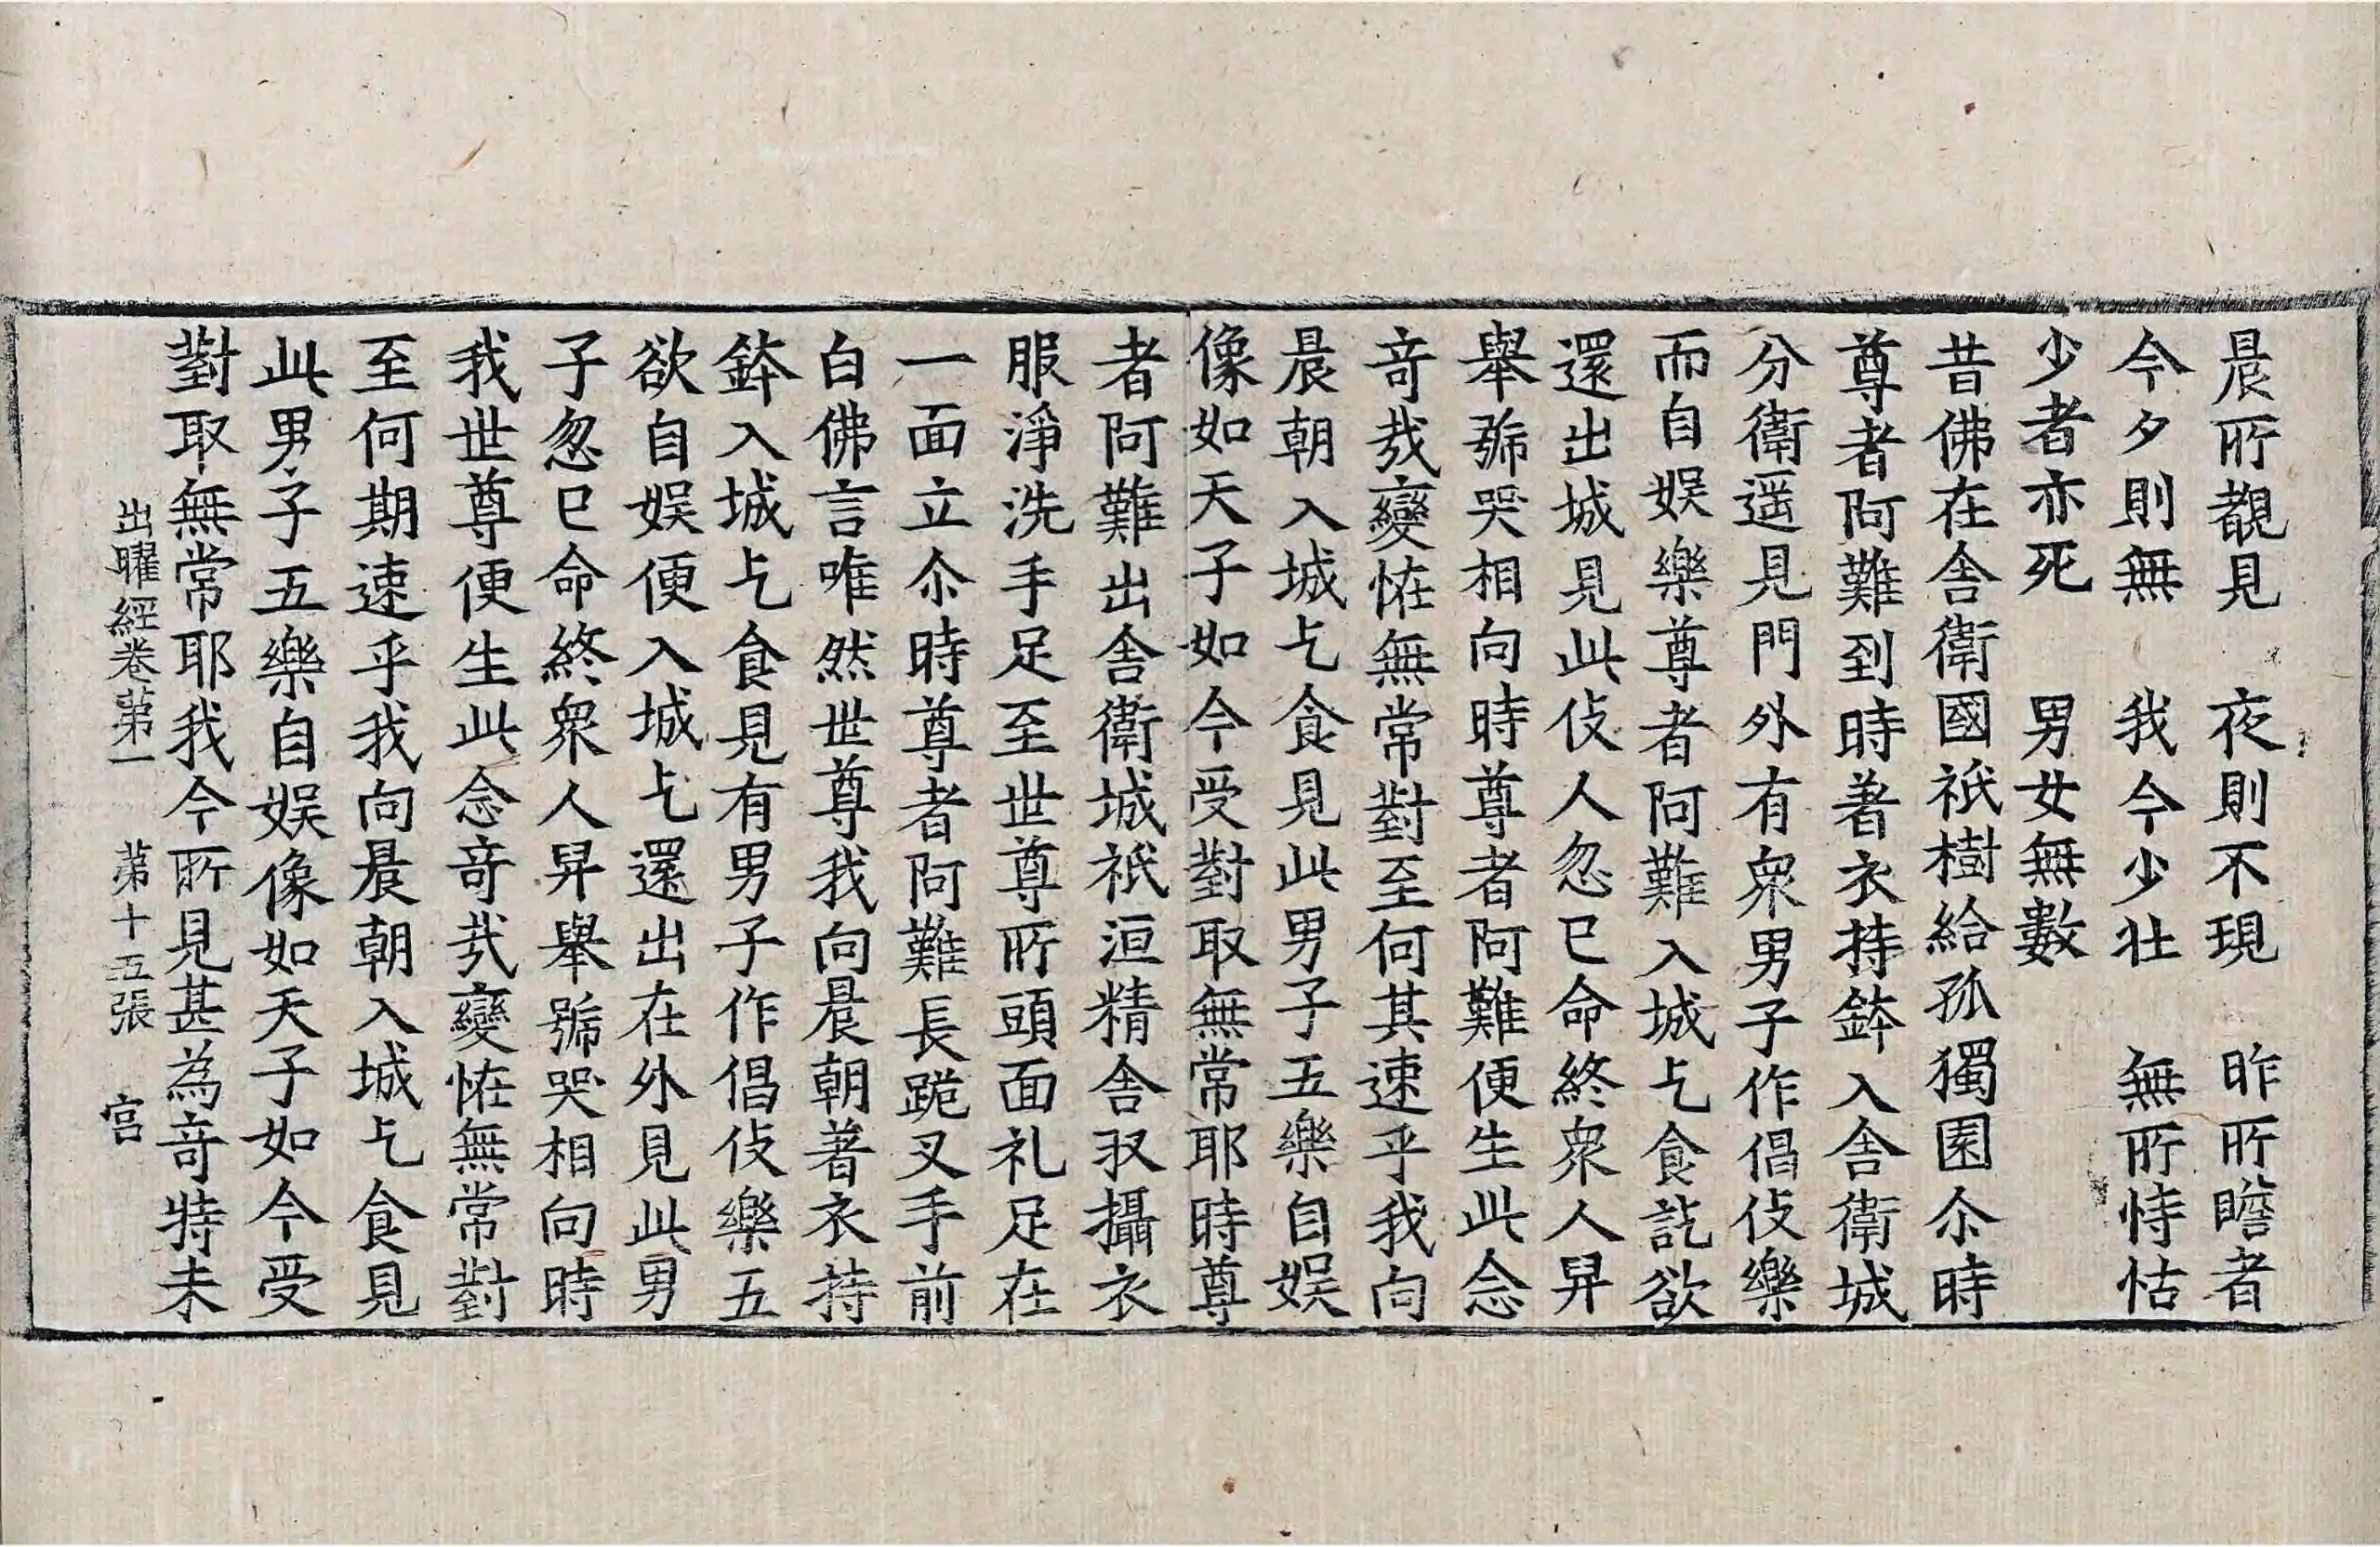 晨所覩見　夜則不現　昨所瞻者
今夕則無　我今少壯　無所恃怙
少者亦死　男女無數
昔佛在舍衛國祇樹給孤獨園尒時
尊者阿難到時著衣持鉢入舍衛城
分衛遥見門外有衆男子作倡伎樂
而自娛樂尊者阿難入城乞食訖欲
還出城見此伎人忽已命終衆人舁
舉號哭相向時尊者阿難便生此念
奇哉變恠無常對至何其速乎我向
晨朝入城乞食見此男子五樂自娛
像如天子如今受對取無常耶時尊
者阿難出舍衛城祇洹精舍収攝衣
服淨洗手足至世尊所頭面礼足在
一面立尒時尊者阿難長跪叉手前
白佛言唯然世尊我向晨朝著衣持
鉢入城乞食見有男子作倡伎樂五
欲自娛便入城乞還出在外見此男
子忽已命終衆人舁舉號哭相向時
我世尊便生此念奇哉變恠無常對
至何期速乎我向晨朝入城乞食見
此男子五樂自娛像如天子如今受
對取無常耶我今所見甚為奇特未
出曜經卷第一　第十五張　宫